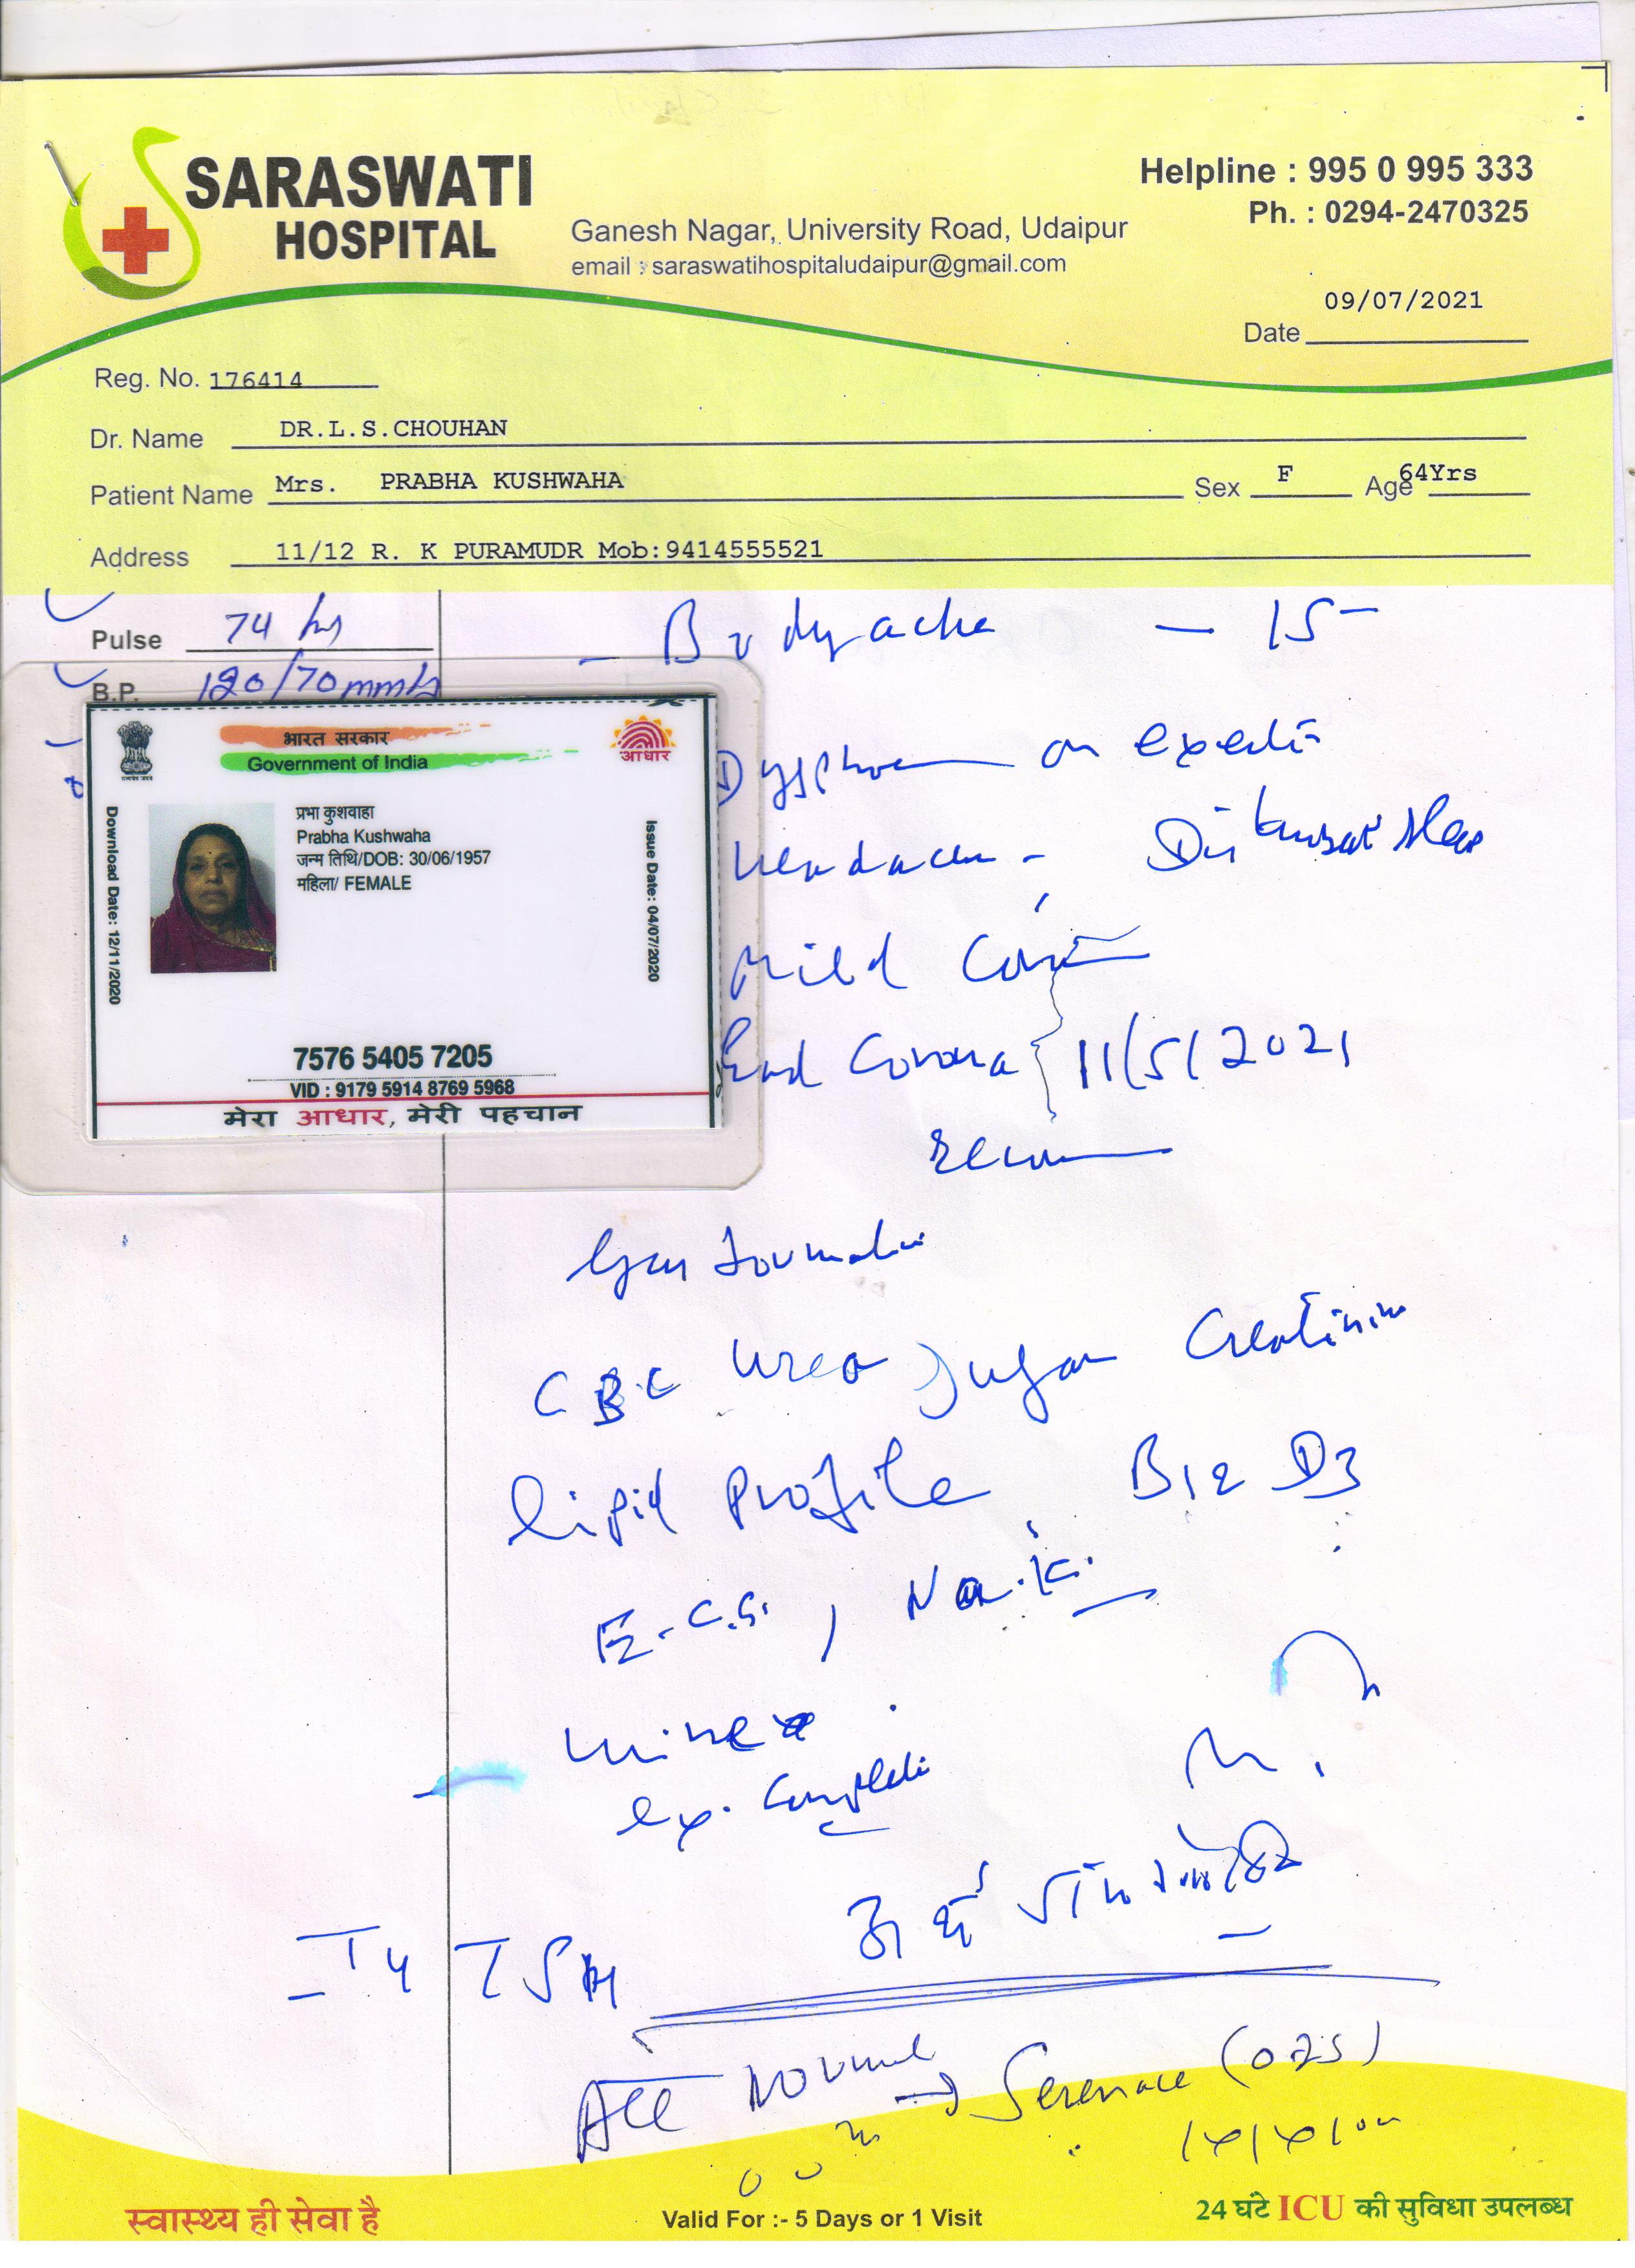 SARASWATI
HOSPITAL
Ganesh Nagar, University Road, Udaipur
email : saraswatihospitaludaipur@gmail.com
Helpline : 995 0 995 333
Ph. : 0294-2470325
Date 09/07/2021
Reg. No. 176414
Dr. Name DR.L.S.CHOUHAN
Patient Name Mrs. PRABHA KUSHWAHA Sex F Age 64Yrs
Address 11/12 R. K PURAMUDR Mob:9414555521
Pulse 74
B.P. 120/70 mmHg
भारत सरकार
Government of India
आधार
Download Date: 12/11/2020
प्रभा कुशवाहा
Prabha Kushwaha
जन्म तिथि/DOB: 30/06/1957
महिला/ FEMALE
Issue Date: 04/07/2020
7576 5405 7205
VID : 9179 5914 8769 5968
मेरा आधार, मेरी पहचान
- Bodyache - 15
on
Headache -
Mild
Corona 11/5/2021
CBC Urea Sugar Creatinine
Lipid Profile B12 D3
E.C.G. , Na.K.
Urine
ex. Complete
T4 TSH
All Normal
Serenace (0.25)
स्वास्थ्य ही सेवा है
Valid For :- 5 Days or 1 Visit
24 घंटे ICU की सुविधा उपलब्ध